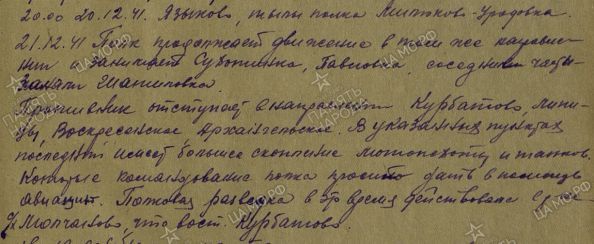 20.00 20.12.41. Языково, тылы полка
21.12.41 Полк продолжает движение в том же направле-
нии занимает Субботинка, Павловка, соседними частя-
заняли Шатиловка.
Противник отступает в направлении Курбатово, Липи-
цы, Воскресенское Архангельское. В указанных пунктах
последний имеет большое скопление мотопехоты и танков.
командование полка просило дать в помощь
авиацию. Полковая разведка в это время действовала в
Молчаново, что вост. Курбатово.
ПАМЯТЬ НАРОДА
ЦА МО РФ